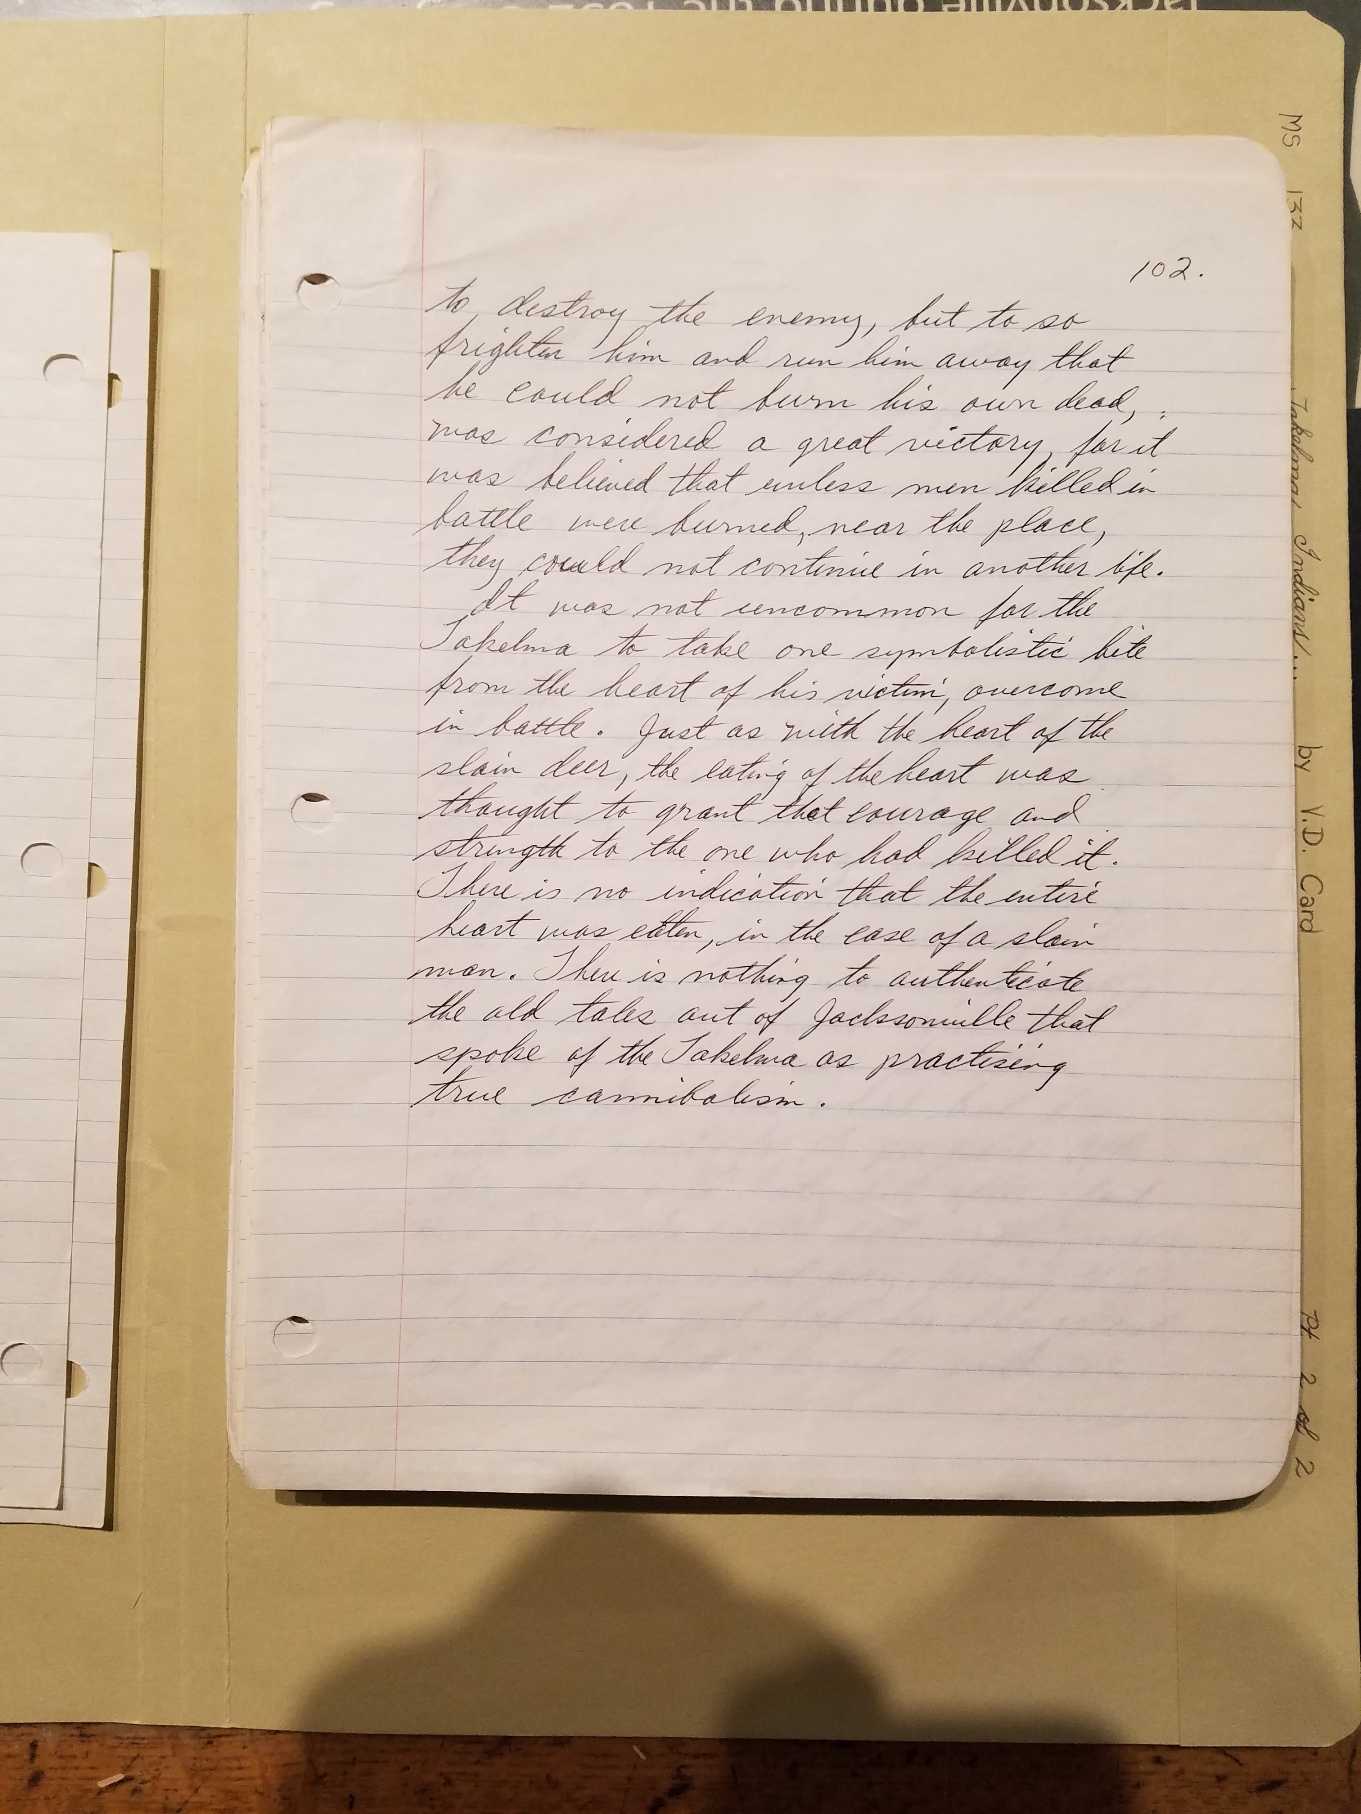 102.
to destroy the enemy, but to so
frighten him and run him away that
he could not burn his own dead,
was considered a great victory, for it
was believed that unless men killed in
battle were burned, near the place,
they could not continue in another life.
It was not uncommon for the
Takelma to take one symbolistic bite
from the heart of his victim, overcome
in battle. Just as with the heart of the
slain deer, the eating of the heart was
thought to grant that courage and
strength to the one who had killed it.
There is no indication that the entire
heart was eaten, in the case of a slain
man. There is nothing to authenticate
the old tales out of Jacksonville that
spoke of the Takelma as practising
true cannibalism.
MS 137 Takelma Indians... by V.D. Card Pt 2 of 2
Jacksonville during the